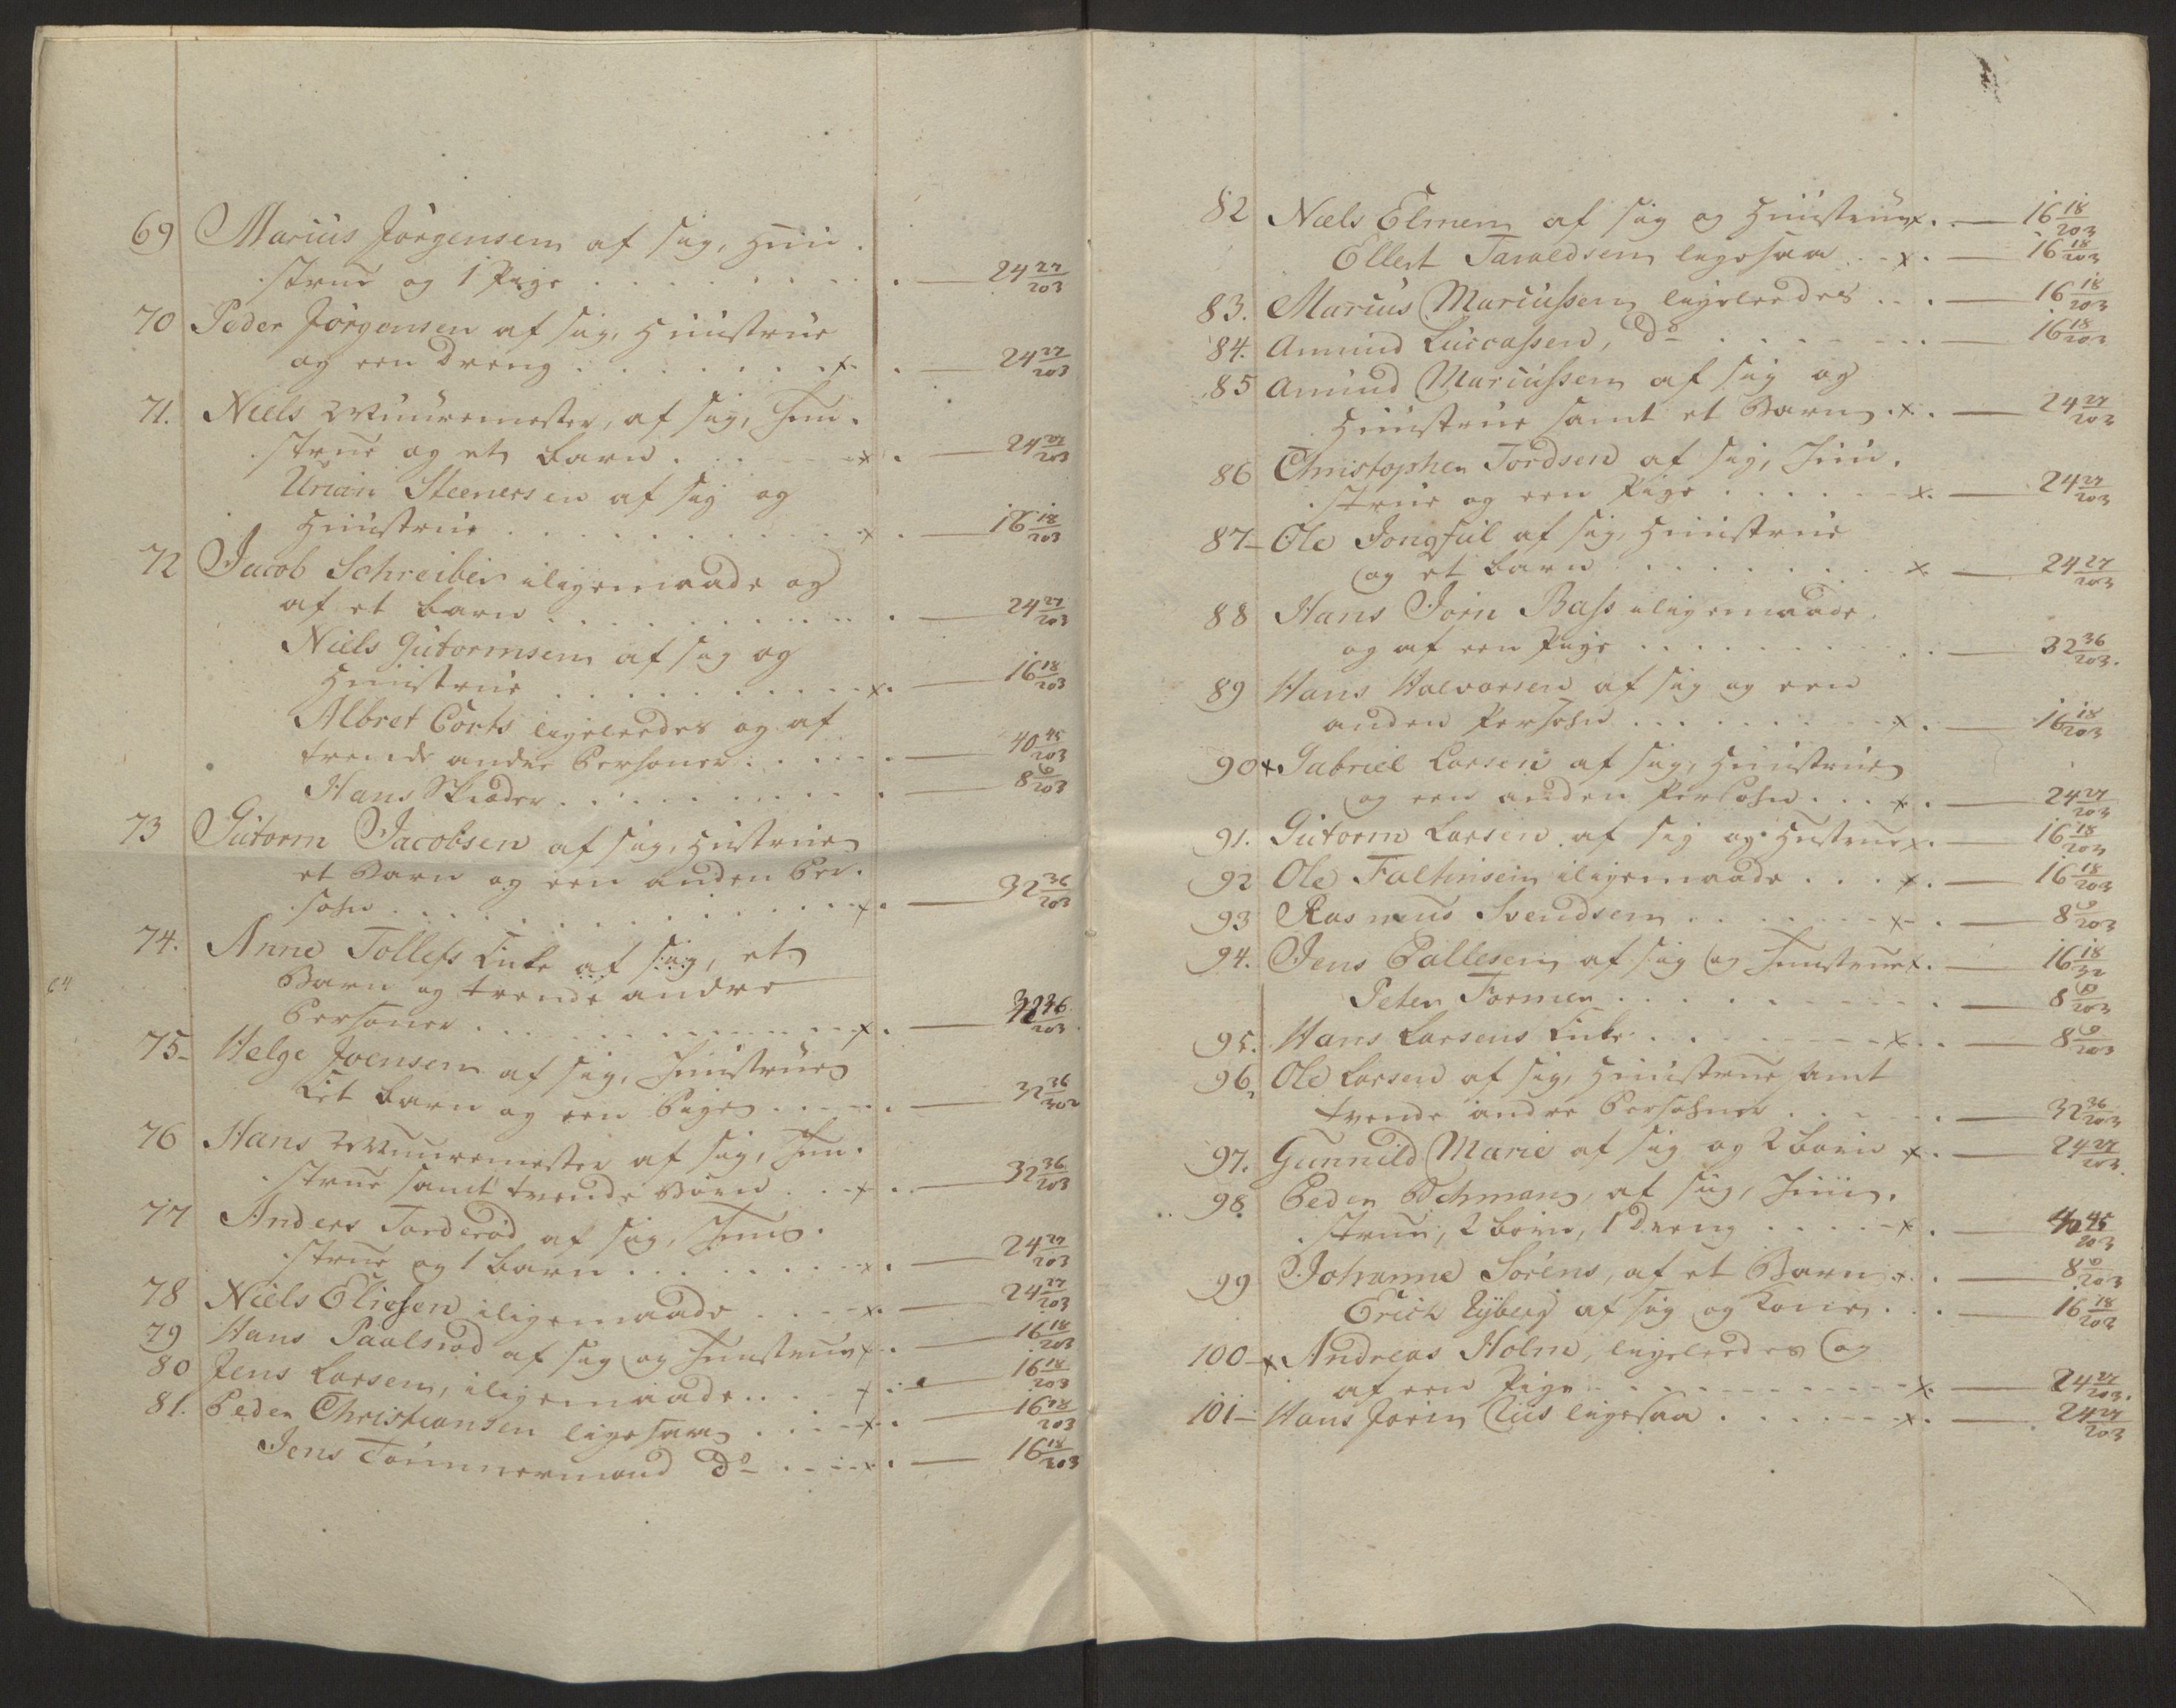 69 Marius Jörgensen af sig, Huu-
strue og 1 Pige . . . . . . . — 24 27/203
70 Peder Jörgensen af sig, Huustrue
og een Dreng . . . . . . x . — 24 27/203
71. Niels Muuremester, af sig, Huu-
strue og et barn . . . . x . — 24 27/203
Urian Steenersen af sig og
Huustrue . . . . . . . x . — 16 18/203
72 Jacob Schreiber iligemaade og
af et barn . . . . . . . . — 24 27/203
Niels Gutormsen af sig og
Huustrue . . . . . . . x . — 16 18/203
Albret Corts ligeleedes og af
trende andre Personer . . . . — 40 45/203
Hans Skräder . . . . . . . — 8 9/203
73 Gutorm Jacobsen af sig, Hustrue
et Barn og een anden Per-
sohn . . . . . . . . . x . — 32 36/203
74. Anne Tollefs Enke af sig, et
Barn og trende andre
Personer . . . . . . . . x . — 36/203
75- Helge Joensen af sig, Huustrue
Et barn og een Pige . . . . . — 32 36/302
76 Hans Muuremester af sig, Huu-
strue samt trende Börn . . x . — 32 36/203
77 Anders Torderöd af sig, Huu-
strue og 1 barn . . . . . x . — 24 27/203
78 Niels Eliesen iligemaade . . . x . — 24 27/203
79 Hans Paalsröd af sig og Huustrue x . — 16 18/203
80 Jens Larsen, iligemaade . . . x . — 16 18/203
81. Peder Christiansen ligesaa . . . x . — 16 18/203
Jens Tömmermand Do . . . x . — 16 18/203
64
82 Niels Elmen af sig og Huustrue x . — 16 18/203
Ellert Taraldsen ligesaa . . x . — 16 18/203
83. Marius Mariussen ligeleedes . . . — 16 18/203
84. Amund Luccassen, Do . . . . . . — 16 18/203
85 Amund Mariussen af sig og
Huustrue samt et Barn . x . — 24 27/203
86 Christopher Tordsen af sig, Huu-
strue og een Pige . . . . . x . — 24 27/203
87- Ole Jongful af sig, Huustrue
og et barn . . . . . . . x . — 24 27/203
88 Hans Jörn Bass iligemaade
og af een Pige . . . . . . . — 32 36/203
89 Hans Halvorsen af sig og een
anden Persohn . . . . . . x . — 16 18/203
90 x Gabriel Larsen af sig, Huustrue
og een anden Persohn . . . x . — 24 27/203
91. Gutorm Larsen af sig og Hustrue x . — 16 18/203
92 Ole Faltinsen iligemaade . . . x . — 16 18/203
93 Rasmus Svendsen . . . . . . x . — 8 9/203
94. Jens Pallesen af sig og Huustrue x . — 16 18/32
Peter Former . . . . . . . . — 8 9/203
95. Hans Larsens Enke . . . . . x . — 8 9/203
96. Ole Larsen af sig, Huustrue samt
tvende andre Persohner . . . . . — 32 36/203
97. Gunnild Marie af sig og 2 börn x . — 24 27/203
98. Peder af sig, Huu-
strue, 2 börn, 1 Dreng . . . . x . — 40 45/203
99 Johanne Sörens, af et Barn x . — 8 9/203
Erich Nyberg af sig og Kone . . — 16 18/203
100- x Andreas Holm, ligeleedes og
af een Pige . . . . . . . x . — 24 27/203
101- Hans Jörn ligesaa . . . . . x . — 24 27/203